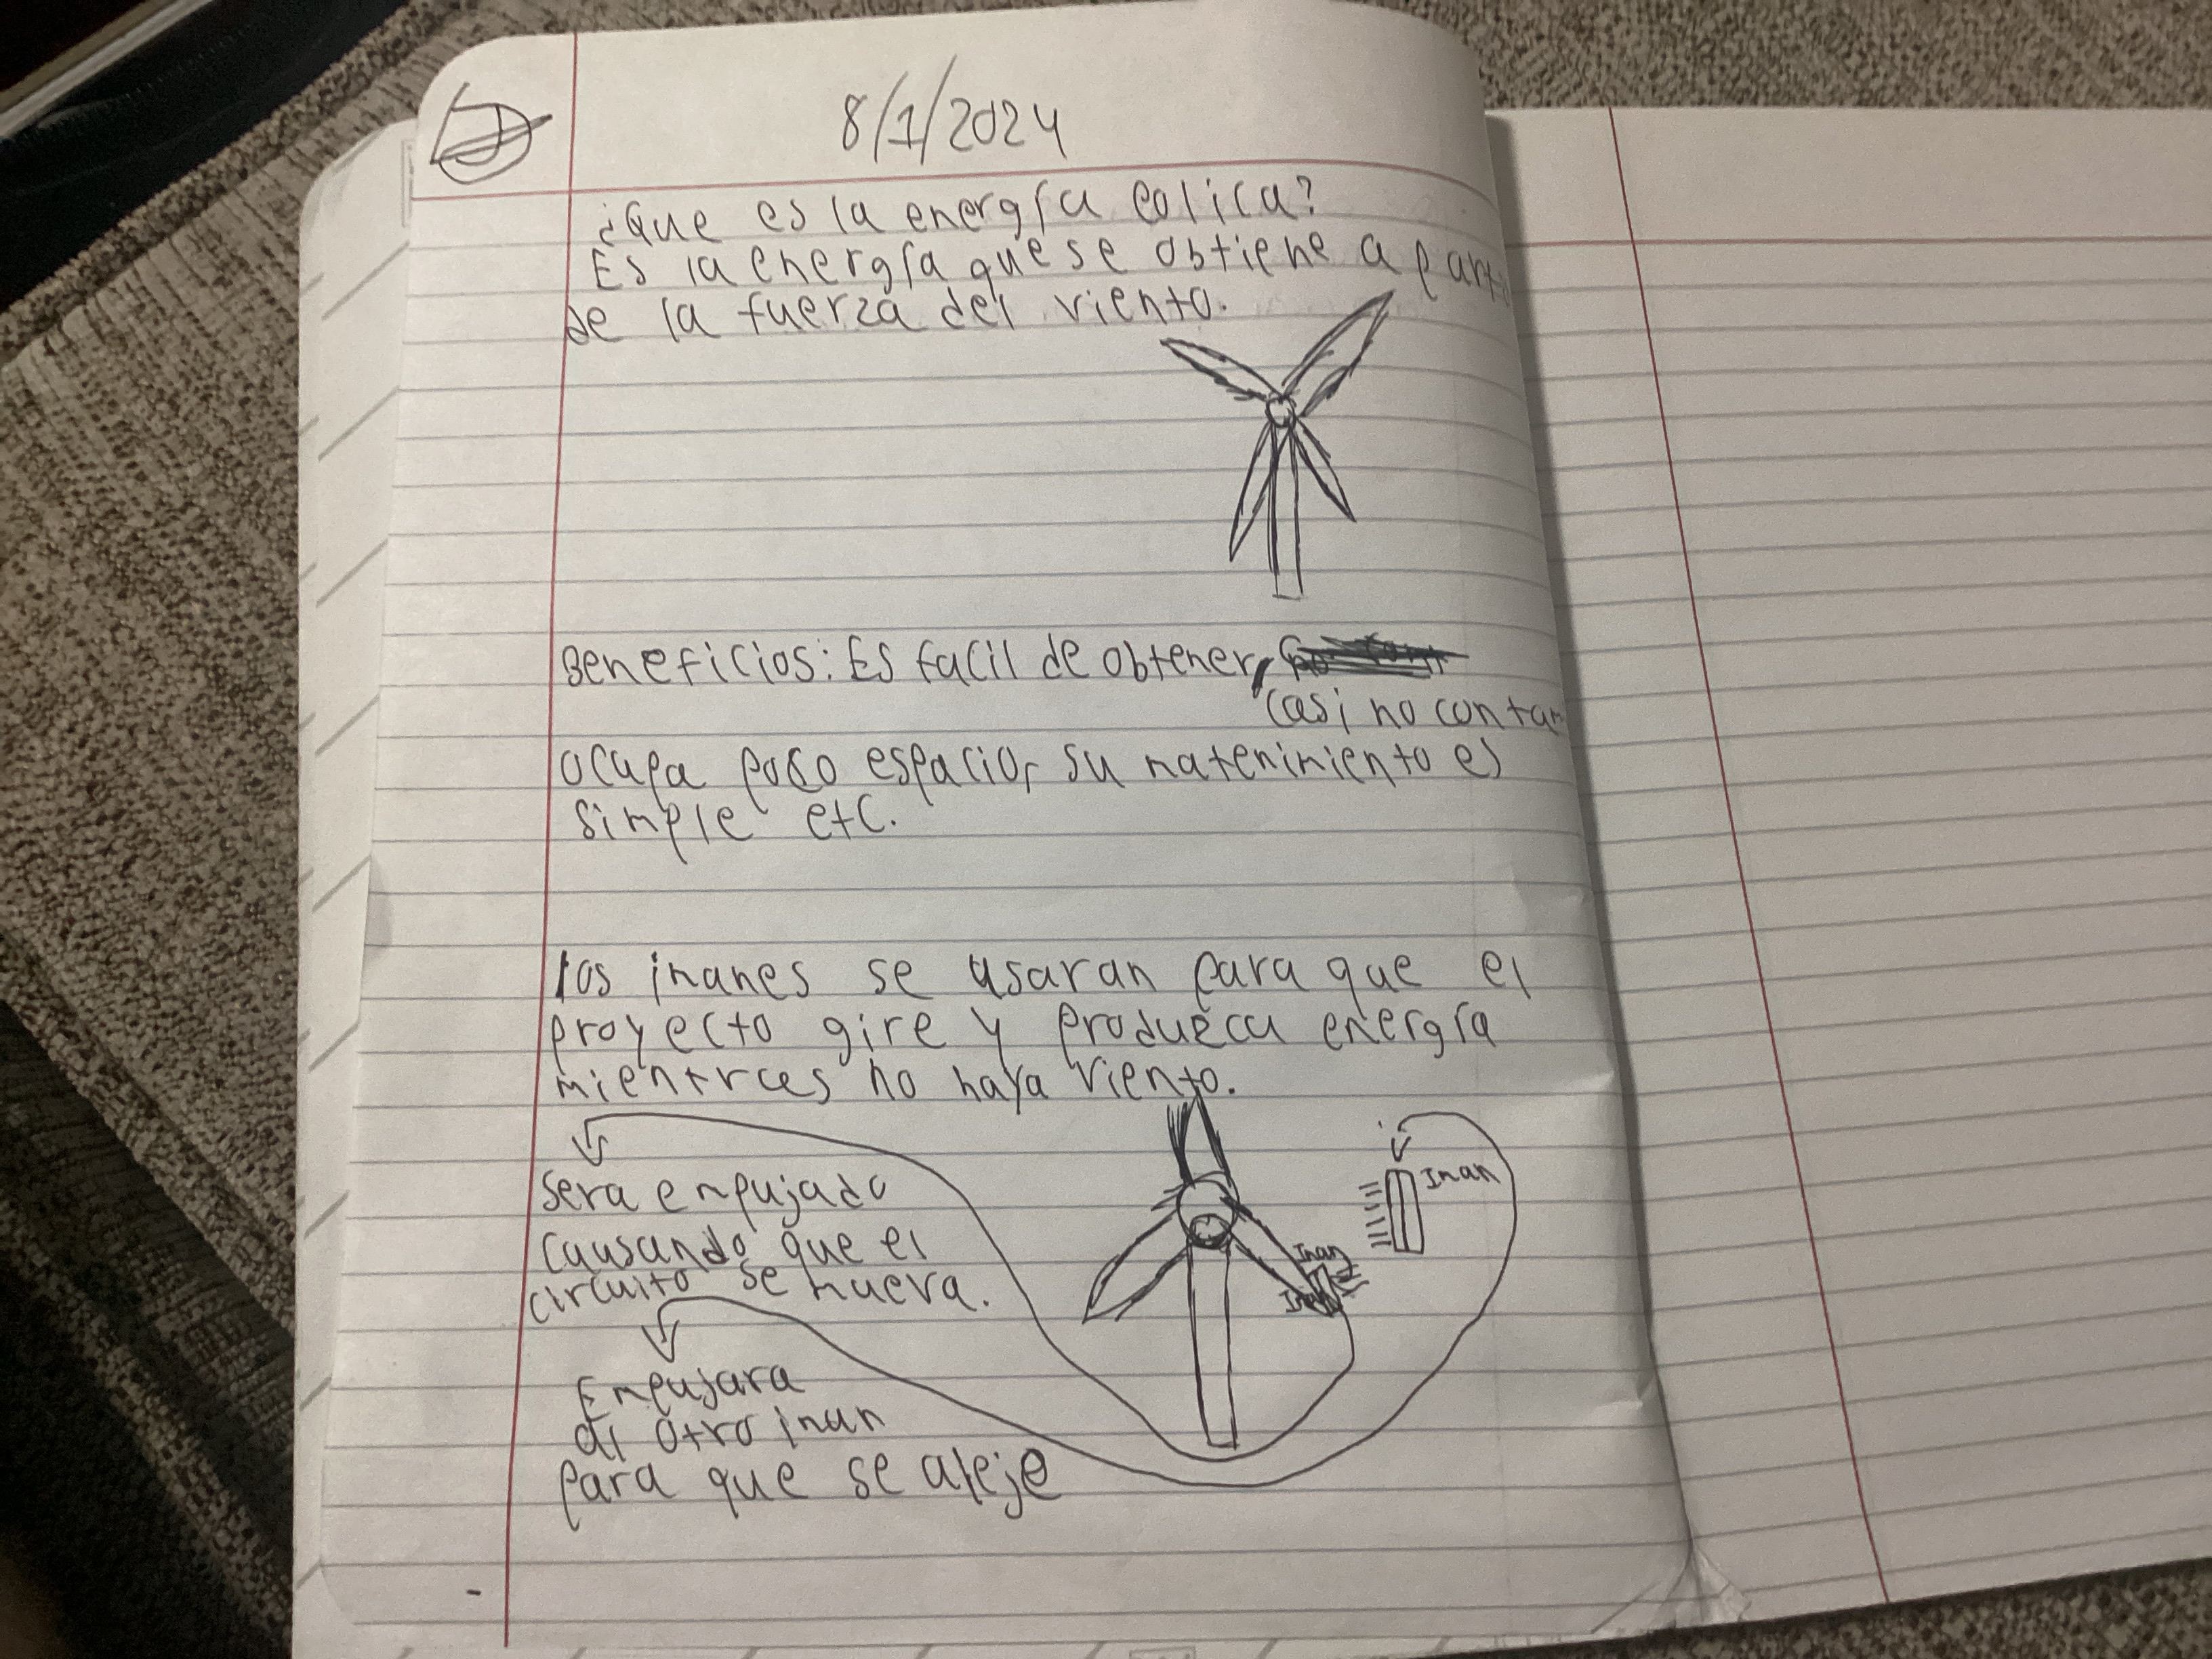 8/1/2024
¿Que es la energía eolica?
Es la energía que se obtiene a part
de la fuerza del viento.
Beneficios: Es facil de obtener,
casi no contam
ocupa poco espacio, su mateniniento es
simple etc.
los inanes se usaran para que el
proyecto gire y produzca energía
mientrces no haya viento.
Inan
Sera enpujado
causando que el
circuito se nueva.
Inan
Inan
Enpujara
al otro inan
para que se aleje